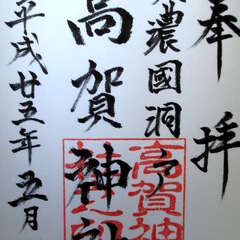 奉拝
濃國洞
高賀神社
平成廿五年五月